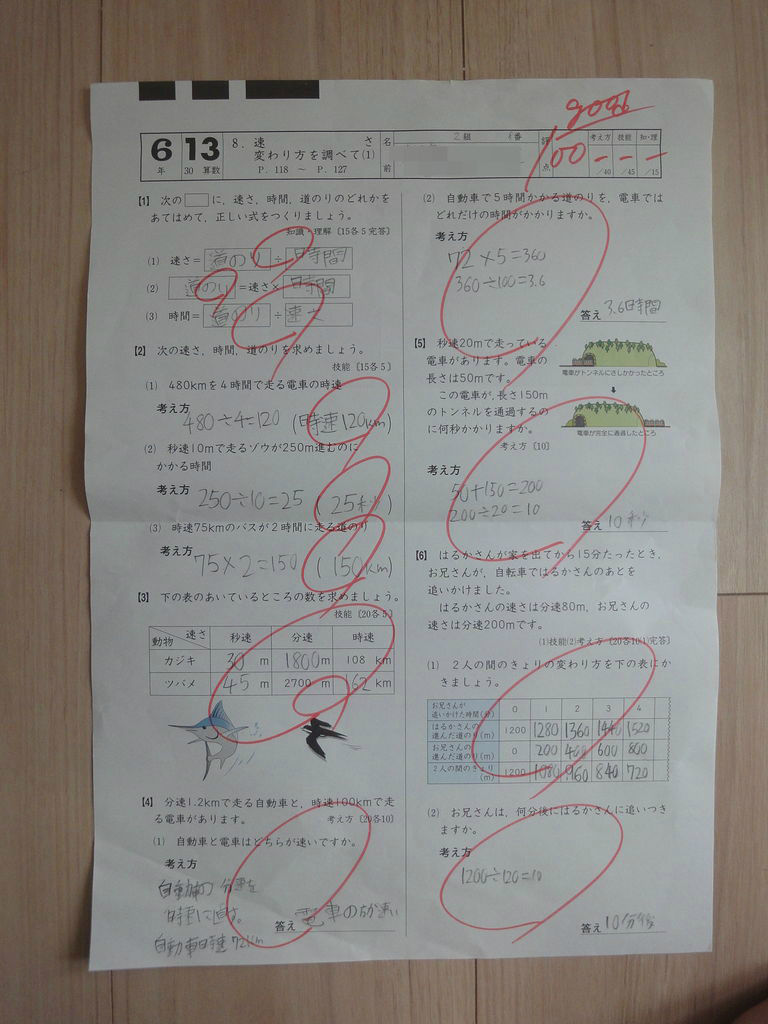 good
6年
13
30 算数
8. 速さ
変わり方を調べて(1)
P. 118 ～ P. 127
名前
2組 1番
評点
100
考え方 技能 知・理
/40 /45 /15
【1】 次の□に, 速さ, 時間, 道のりのどれかを
あてはめて, 正しい式をつくりましょう。
知識・理解〔15各5完答〕
(1) 速さ＝道のり÷時間
(2) 道のり＝速さ×時間
(3) 時間＝道のり÷速さ
【2】 次の速さ, 時間, 道のりを求めましょう。
技能〔15各5〕
(1) 480kmを4時間で走る電車の時速
考え方
480÷4=120 (時速120km)
(2) 秒速10mで走るゾウが250m進むのに
かかる時間
考え方
250÷10=25 (25秒)
(3) 時速75kmのバスが2時間に走る道のり
考え方
75×2=150 (150km)
【3】 下の表のあいているところの数を求めましょう。
技能〔20各5〕
動物 速さ 秒速 分速 時速
カジキ 30 m 1800m 108 km
ツバメ 45 m 2700 m 162 km
【4】 分速1.2kmで走る自動車と, 時速100kmで走
る電車があります。 考え方〔20各10〕
(1) 自動車と電車はどちらが速いですか。
考え方
自動車の分速を
時速に直す。
自動車時速72km
答え 電車の方が速い
(2) 自動車で5時間かかる道のりを, 電車では
どれだけの時間がかかりますか。
考え方
72×5=360
360÷100=3.6
答え 3.6時間
【5】 秒速20mで走っている
電車があります。電車の
長さは50mです。
この電車が, 長さ150m
のトンネルを通過するの
に何秒かかりますか。
考え方〔10〕
電車がトンネルにさしかかったところ
電車が完全に通過したところ
考え方
50+150=200
200÷20=10
答え 10秒
【6】 はるかさんが家を出てから15分たったとき,
お兄さんが, 自転車ではるかさんのあとを
追いかけました。
はるかさんの速さは分速80m, お兄さんの
速さは分速200mです。
(1)技能(2)考え方〔20各10(1)完答〕
(1) 2人の間のきょりの変わり方を下の表にか
きましょう。
お兄さんが追いかけた時間(分) 0 1 2 3 4
はるかさんの進んだ道のり(m) 1200 1280 1360 1440 1520
お兄さんの進んだ道のり(m) 0 200 400 600 800
2人の間のきょり(m) 1200 1080 960 840 720
(2) お兄さんは, 何分後にはるかさんに追いつき
ますか。
考え方
1200÷120=10
答え 10分後